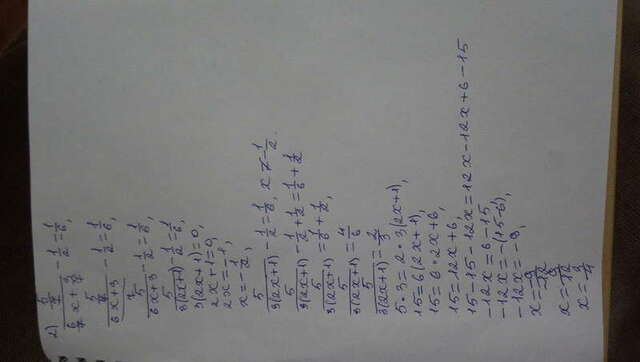 2) (5/7)/(6/7 x + 3/7) - 1/2 = 1/6,
(5/7)/((6x+3)/7) - 1/2 = 1/6,
5/(6x+3) - 1/2 = 1/6,
5/(3(2x+1)) - 1/2 = 1/6,
3(2x+1)=0,
2x+1=0,
2x=-1,
x=-1/2,
5/(3(2x+1)) - 1/2 = 1/6, x≠-1/2.
5/(3(2x+1)) - 1/2 + 1/2 = 1/6 + 1/2
5/(3(2x+1)) = 1/6 + 1/2,
5/(3(2x+1)) = 4/6
5/(3(2x+1)) = 2/3
5·3=2·3(2x+1),
15=6(2x+1),
15=6·2x+6,
15=12x+6,
15-15-12x=12x-12x+6-15
-12x=6-15,
-12x=-(15-6),
-12x=-9,
x=-9/-12
x=9/12
x=3/4